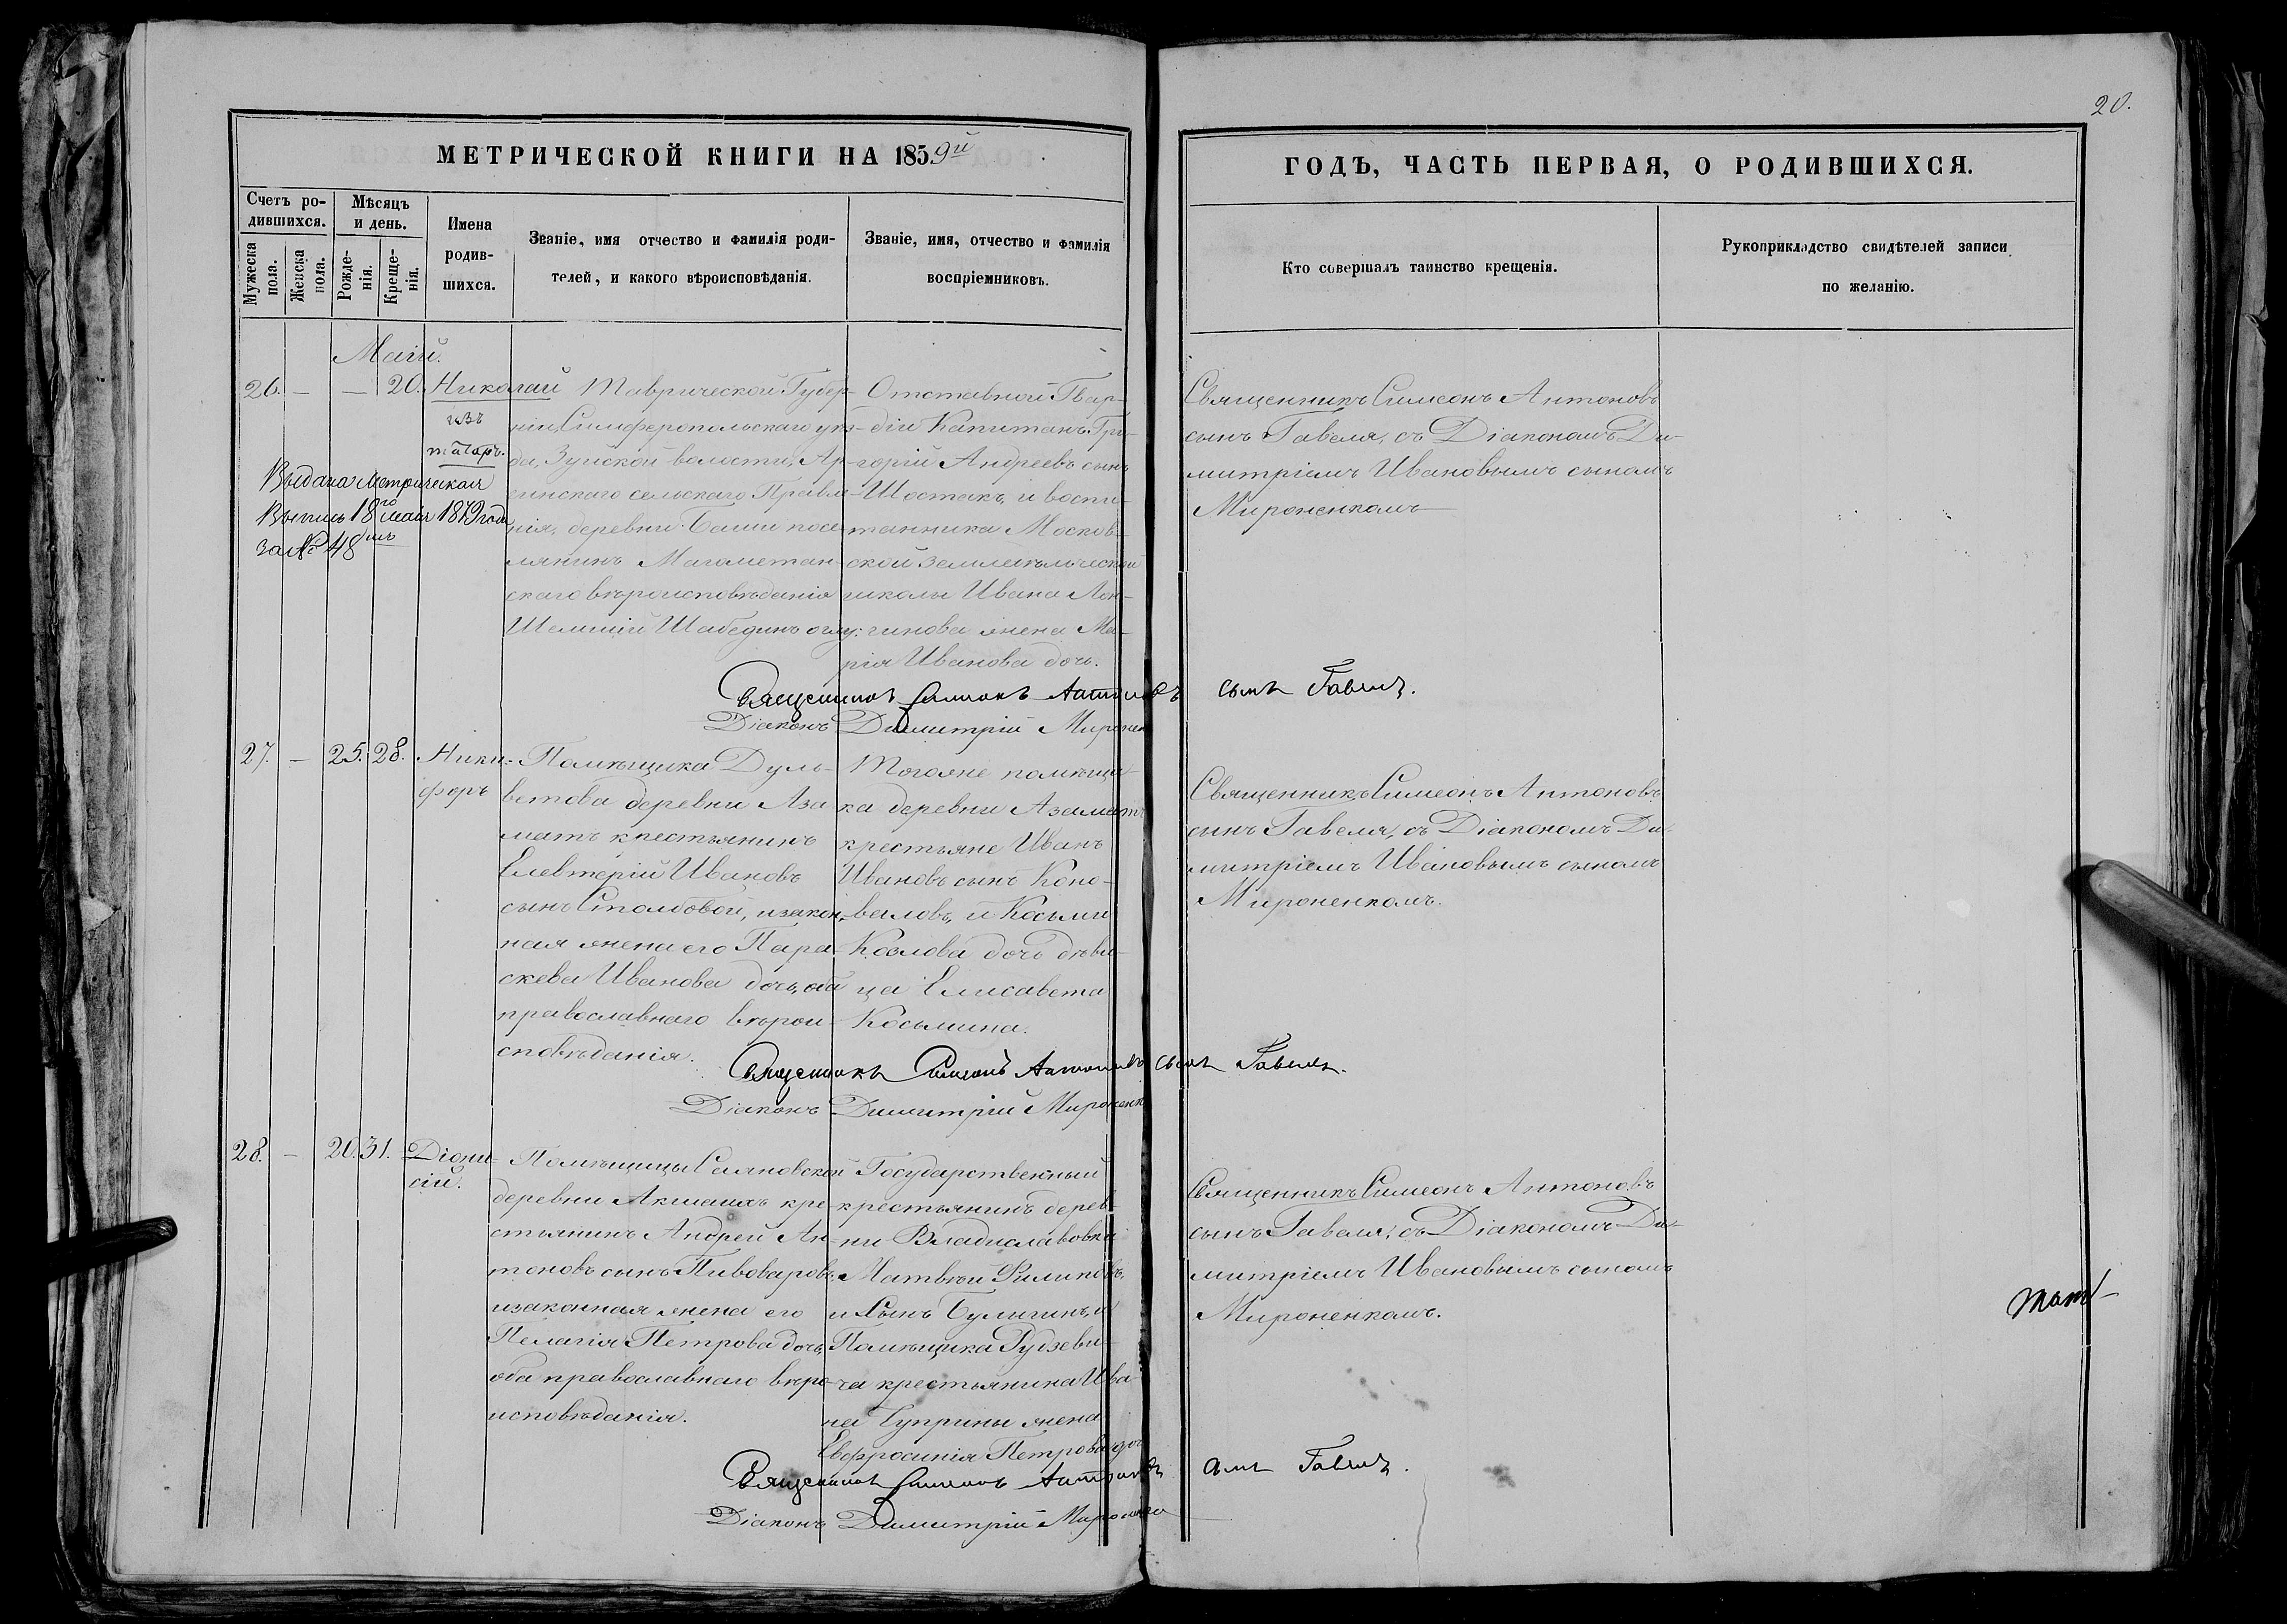 20.
МЕТРИЧЕСКОЙ КНИГИ НА 1859й
ГОДЪ, ЧАСТЬ ПЕРВАЯ, О РОДИВШИХСЯ.
Счетъ ро-
дившихся.
Мужеска
пола.
Женска
пола.
Мѣсяцъ
и день.
Рожде-
нія.
Креще-
нія.
Имена
родив-
шихся.
Званіе, имя отчество и фамилія роди-
телей, и какого вѣроисповѣданія.
Званіе, имя, отчество и фамилія
воспріемниковъ.
Кто совершалъ таинство крещенія.
Рукоприкладство свидѣтелей записи
по желанію.
Маій.
26. — — 20. Николай
изъ
татаръ.
Выдана Метрическая
Выпись 18го мая 1879 года
за № 48мъ
Таврической Губер-
ніи, Симферопольскаго уѣз-
да, Зуйской волости, Ар-
гинскаго сельскаго Правле-
нія, деревни Баши посе-
лянинъ Магометан-
скаго вѣроисповѣданія
Шабединъ оглу.
Отставной Гвар-
діи Капитанъ Гри-
горій Андреевъ сынъ
Шостакъ, и воспи-
танника Москов-
ской Земледѣльческой
школы Ивана Лон-
гинова жена Ма-
рія Иванова дочь.
Священникъ Симеонъ Антоновъ
сынъ Гавеля, съ Діакономъ Ди-
митріемъ Ивановымъ сыномъ
Мироненкомъ
Священникъ Симеонъ Антоновъ сынъ Гавеля.
Діаконъ Димитрій Миронен
27. — 25. 28. Ники-
форъ
Помѣщика Дуль-
ветова деревни Аза-
матъ крестьянинъ
Елевтерій Ивановъ
сынъ Столбовой, и закон-
ная жена его Пара-
скева Иванова дочь, оба
православнаго вѣрои-
сповѣданія.
Тогоже помѣщи-
ка деревни Азаматъ
крестьяне Иванъ
Ивановъ сынъ Коно-
валовъ, и Косьми
Козлова дочь дѣви-
ца Елисавета
Косьмина.
Священникъ Симеонъ Антоновъ
сынъ Гавеля, съ Діакономъ Ди-
митріемъ Ивановымъ сыномъ
Мироненкомъ.
Священникъ Симеонъ Антоновъ сынъ Гавеля.
Діаконъ Димитрій Мироненк
28. — 20. 31. Діони-
сій.
Помѣщицы
деревни Акмашъ кре-
стьянинъ Андрей Ан-
тоновъ сынъ Пивоваровъ,
и законная жена его
Пелагія Петрова дочь,
оба православнаго вѣро-
исповѣданія.
Государственный
крестьянинъ дерев-
ни Владиславовки
Матвѣй Филиповъ
сынъ Булыгинъ, и
Помѣщика Рудзеви-
ча крестьянина Ива-
на Чуприны жена
Евфросинія Петрова доч
Священникъ Симеонъ Антоновъ
сынъ Гавеля, съ Діакономъ Ди-
митріемъ Ивановымъ сыномъ
Мироненкомъ.
Священникъ Симеонъ Антоновъ сынъ Гавеля.
Діаконъ Димитрій Мироненко